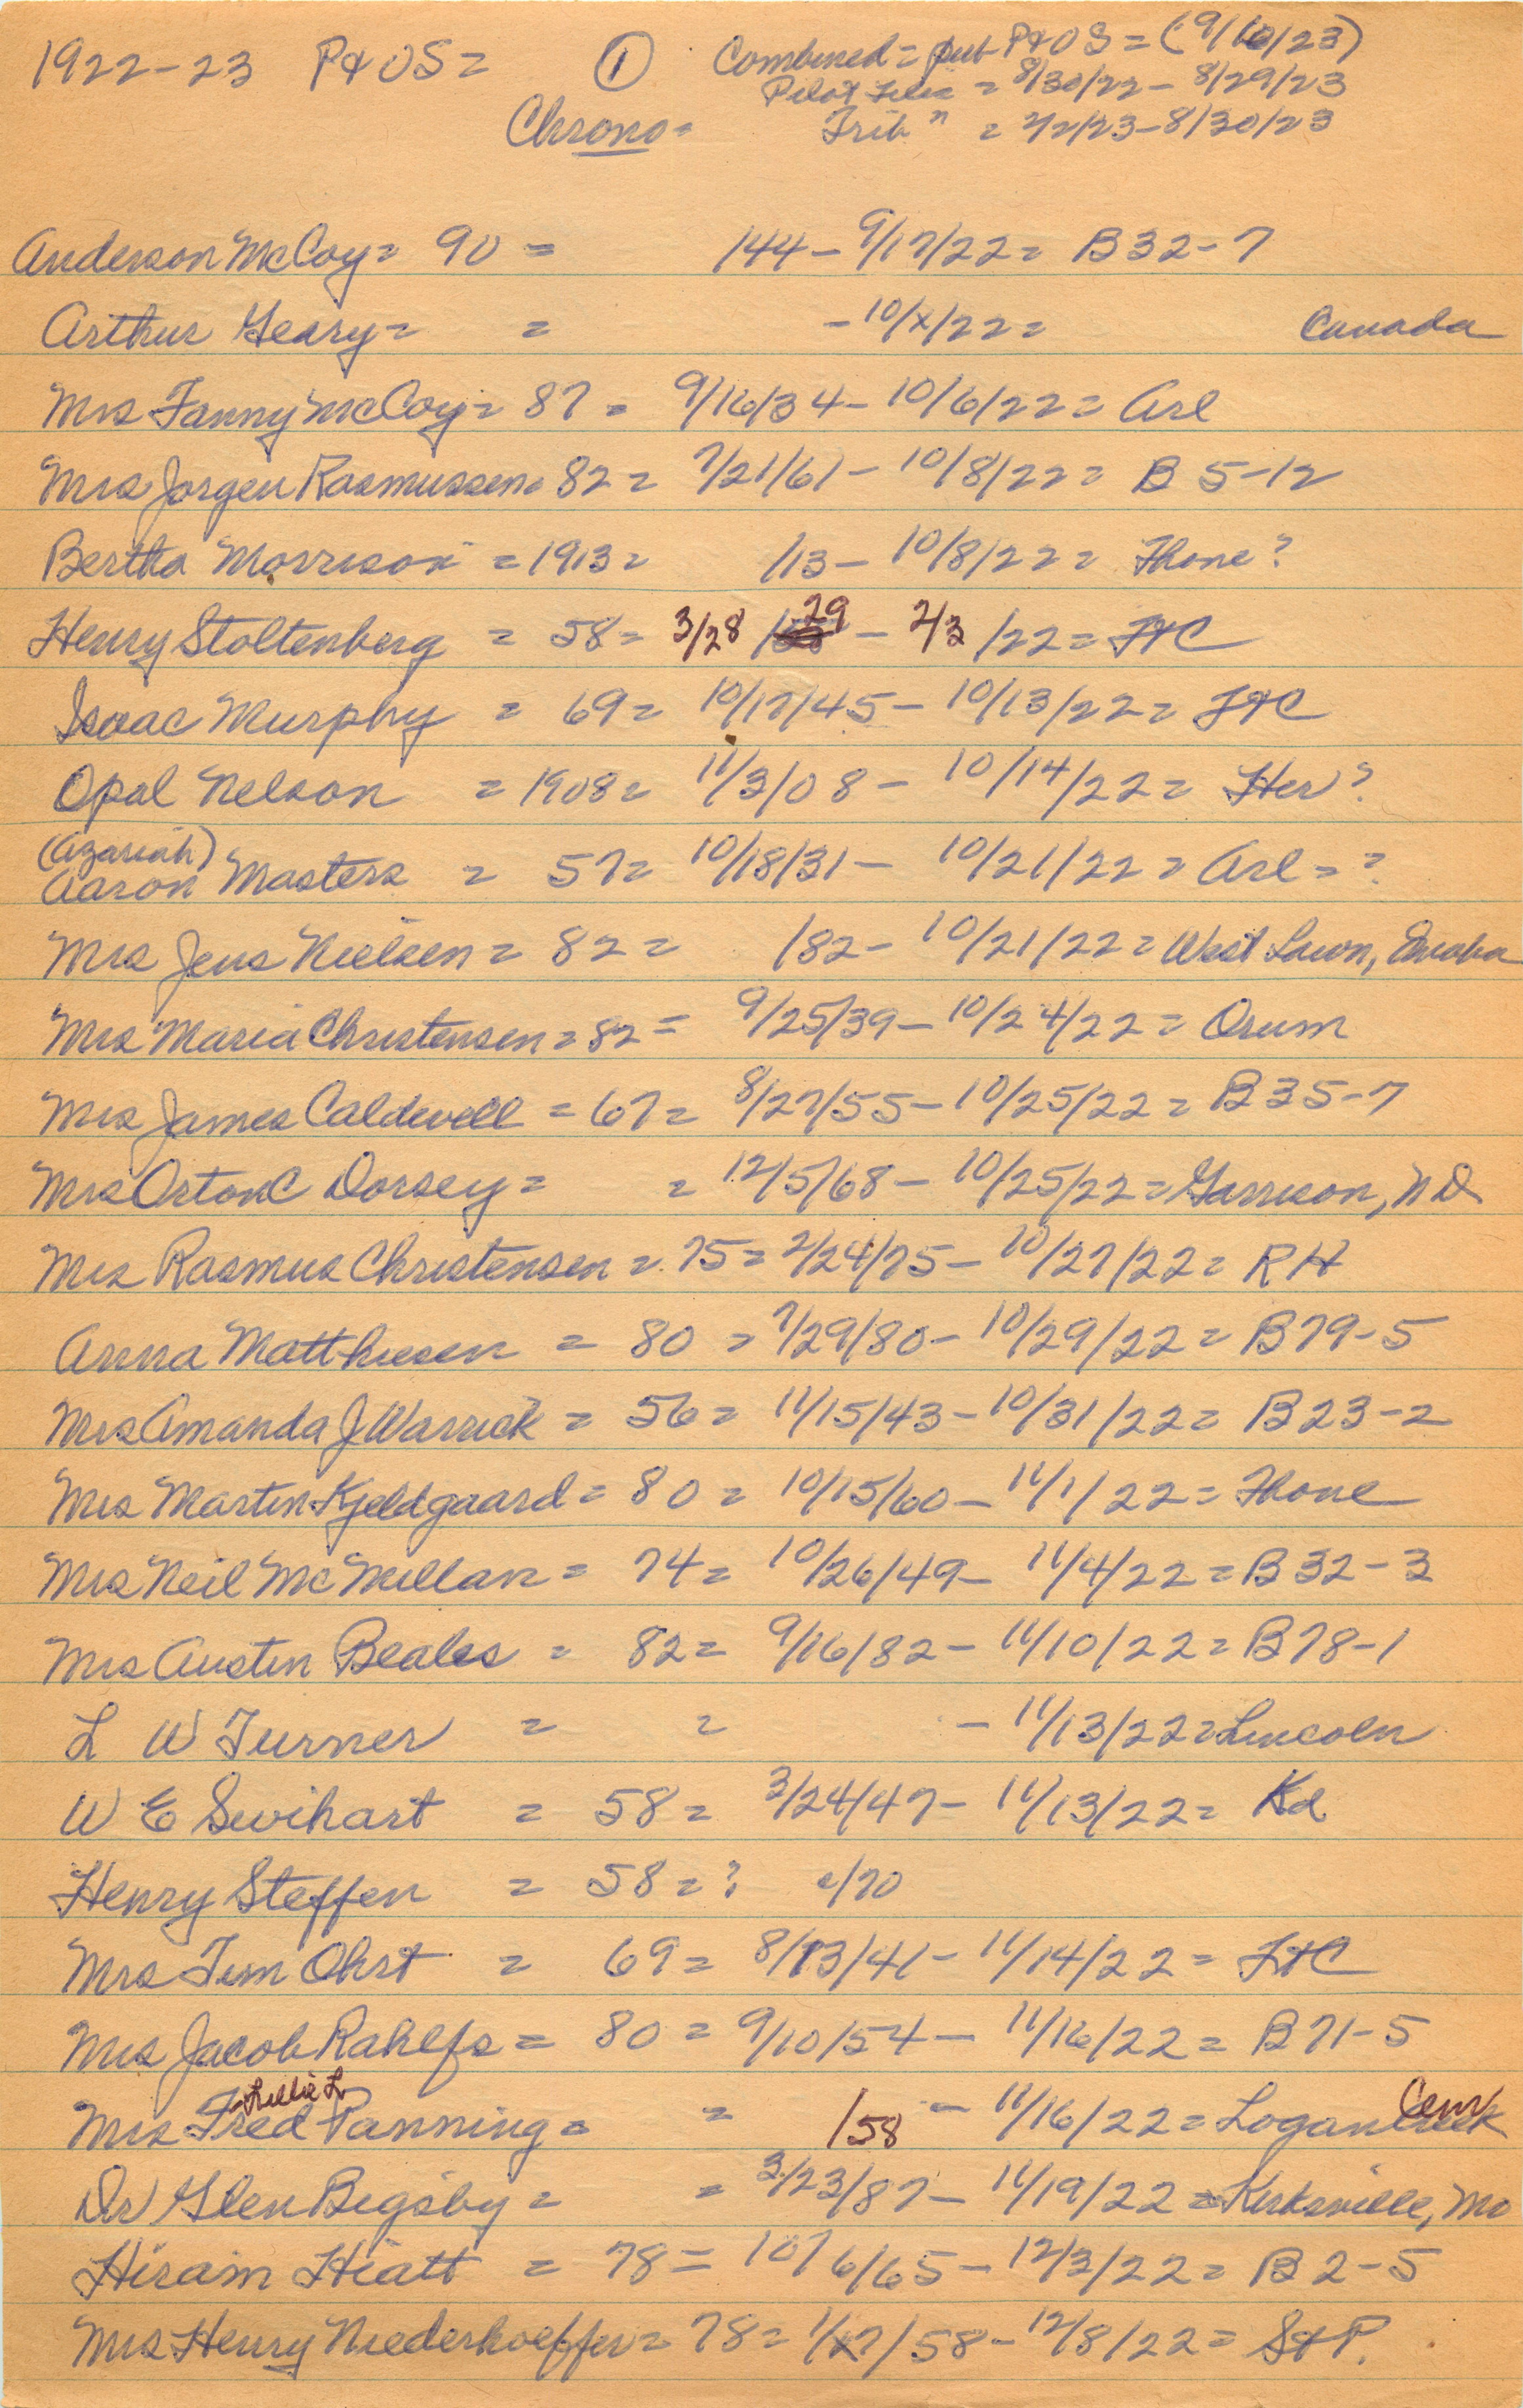 1922-23 P&OS = ① Combined = pub P&OS = (9/10/23)
Pilot = 8/30/22 - 8/29/23
Chrono = Trib " = 2/2/23 - 8/30/23
Anderson McCoy = 90 = 144 - 9/17/22 = B32-7
Arthur Geary = = - 10/x/22 = Canada
Mrs Fanny McCoy = 87 = 9/16/34 - 10/6/22 = Arl
Mrs Jorgen Rasmussen = 82 = 7/21/61 - 10/8/22 = B 5-12
Bertha Morrison = 1913 = /13 - 10/8/22 = Fhone ?
Henry Stoltenberg = 58 = 3/28 /29 - 2/3 /22 = FtC
Isaac Murphy = 69 = 10/17/45 - 10/13/22 = FtC
Opal Nelson = 1908 = 11/3/08 - 10/14/22 = Her ?
(Azariah)
Aaron Masters = 57 = 10/18/31 - 10/21/22 = Arl = ?
Mrs Jens Nielsen = 82 = /82 - 10/21/22 = West Lawn, Omaha
Mrs Maria Christensen = 82 = 9/25/39 - 10/24/22 = Orum
Mrs James Caldwell = 67 = 8/27/55 - 10/25/22 = B35-7
Mrs Orton C Dorsey = = 12/5/68 - 10/25/22 = Garrison, ND
Mrs Rasmus Christensen = 75 = 2/24/75 - 10/27/22 = RH
Anna Matthiesen = 80 = 7/29/80 - 10/29/22 = B79-5
Mrs Amanda J Warrick = 56 = 11/15/43 - 10/31/22 = B23-2
Mrs Martin Kjeldgaard = 80 = 10/15/60 - 11/1/22 = Fhone
Mrs Neil McMillan = 74 = 10/26/49 - 11/4/22 = B32-3
Mrs Austin Beales = 82 = 9/16/82 - 11/10/22 = B78-1
L W Turner = = - 11/13/22 = Lincoln
W E Swihart = 58 = 3/24/47 - 11/13/22 = Kd
Henry Steffen = 58 = ? c/70
Mrs Tim Ohrt = 69 = 8/13/41 - 11/14/22 = FtC
Mrs Jacob Rahlfs = 80 = 9/10/54 - 11/16/22 = B71-5
Lillie L Cem
Mrs Fred Panning = = /58 - 11/16/22 = Logan Creek
Dr Glen Bigsby = = 3/23/87 - 11/19/22 = Kirksville, Mo
Hiram Hiatt = 78 = 10/6/65 - 12/3/22 = B 2-5
Mrs Henry Niederhoeffer = 78 = 1/27/58 - 12/8/22 = StP.